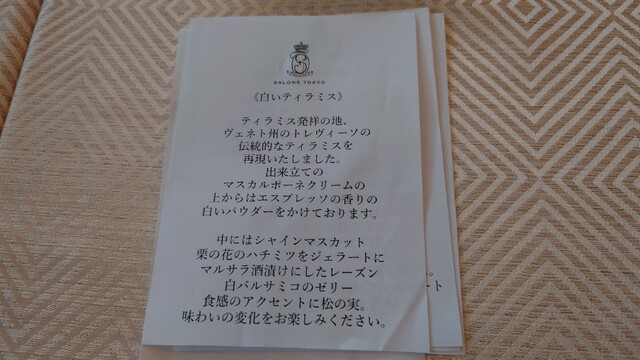 S
SALONE TOKYO
《白いティラミス》
ティラミス発祥の地、
ヴェネト州のトレヴィーソの
伝統的なティラミスを
再現いたしました。
出来立ての
マスカルポーネクリームの
上からはエスプレッソの香りの
白いパウダーをかけております。
中にはシャインマスカット
栗の花のハチミツをジェラートに
マルサラ酒漬けにしたレーズン
白バルサミコのゼリー
食感のアクセントに松の実。
味わいの変化をお楽しみください。
。
ート